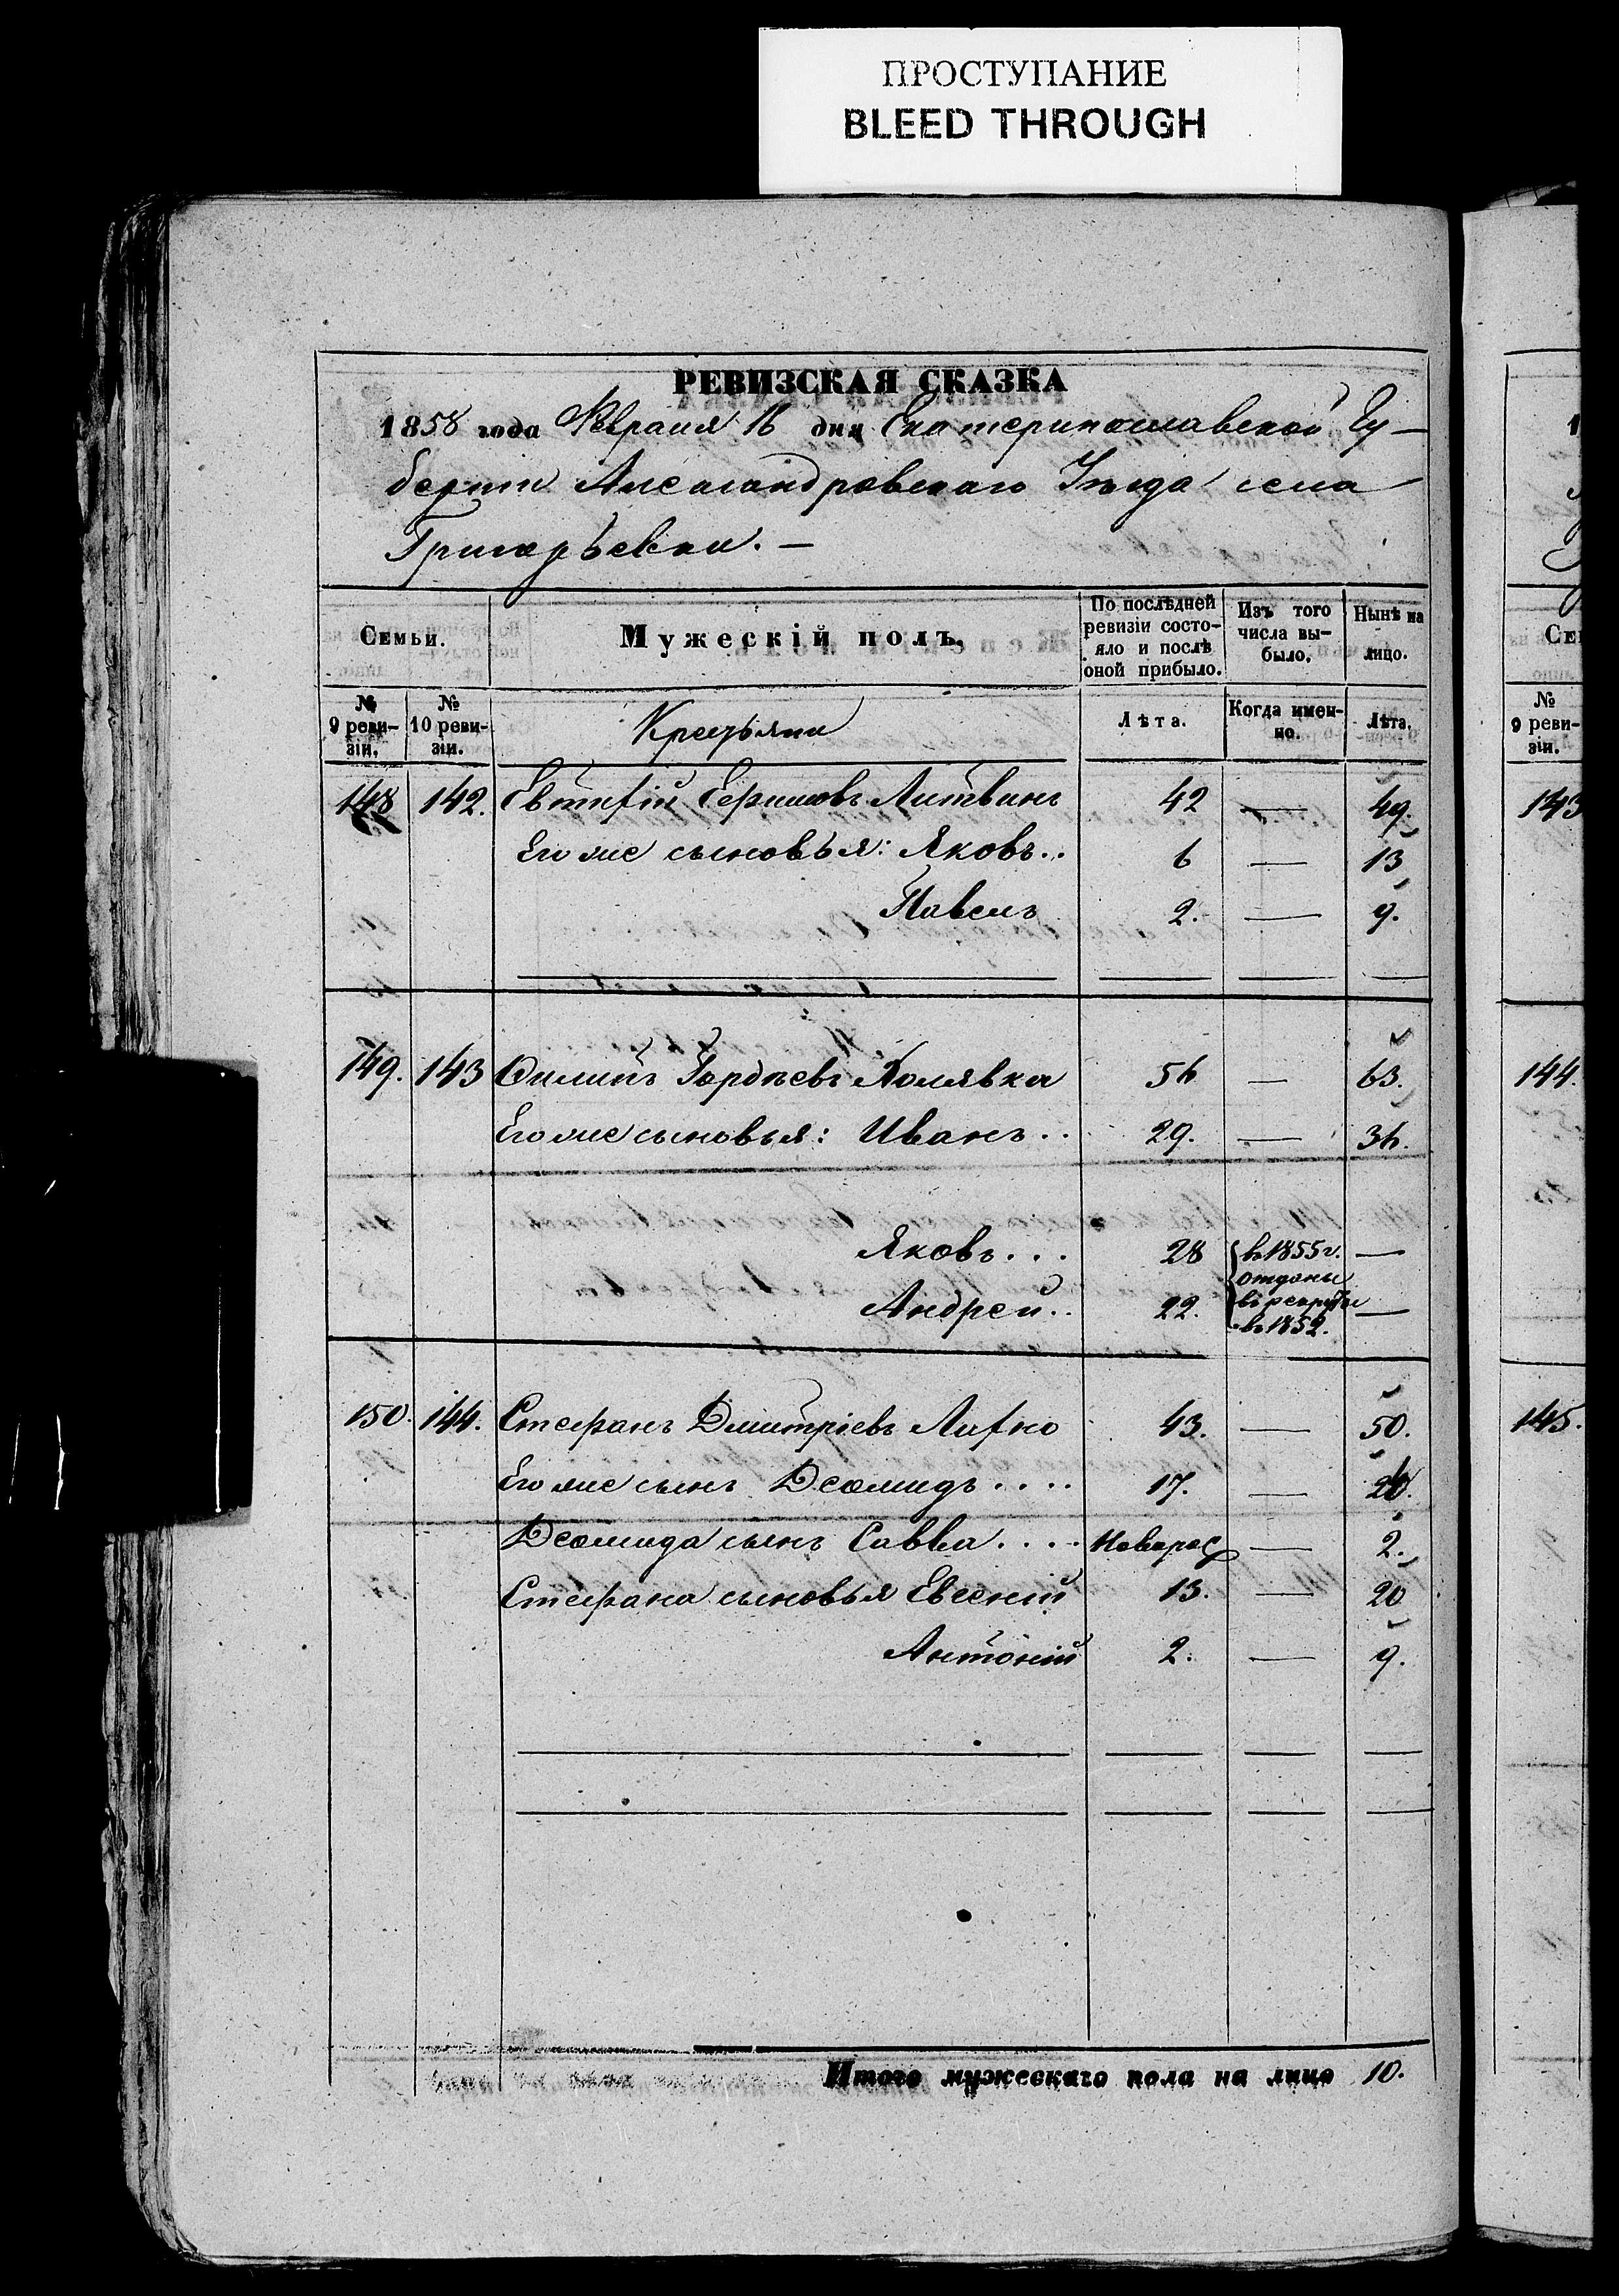 ПРОСТУПАНИЕ
BLEED THROUGH
РЕВИЗСКАЯ СКАЗКА
1858 года Февраля 16 дня Екатеринославской Гу-
берніи Александровскаго Уѣзда села
Григорьевки. —
Семьи. Мужескій полъ. По послѣдней ревизіи состояло и послѣ оной прибыло. Изъ того числа выбыло. Нынѣ на лицо.
№ 9 ревизіи. № 10 ревизіи. Крестьяне Лѣта. Когда именно. Лѣта.
148 142. Евтифій Литвинъ 42 — 49.
Его же сыновья: Яковъ.. 6 — 13
Павелъ 2. — 9.
149. 143 Филипъ Гордѣевъ Халявка 56 — 63.
Его же сыновья: Иванъ.. 29. — 36.
Яковъ... 28 въ 1855 г. —
отданы
Андрей.. 22. въ рекруты —
въ 1852.
150. 144. Стефанъ Дмитріевъ 43. — 50.
Его же сынъ Деомидъ.... 17. — 24.
Деомида сынъ Савва.... Новорож — 2.
Стефана сыновья Евсеній 13. — 20
Антоній 2. — 9.
Итого мужескаго пола на лицо 10.
1
Се
№ 9 ревизіи.
143
144.
145.